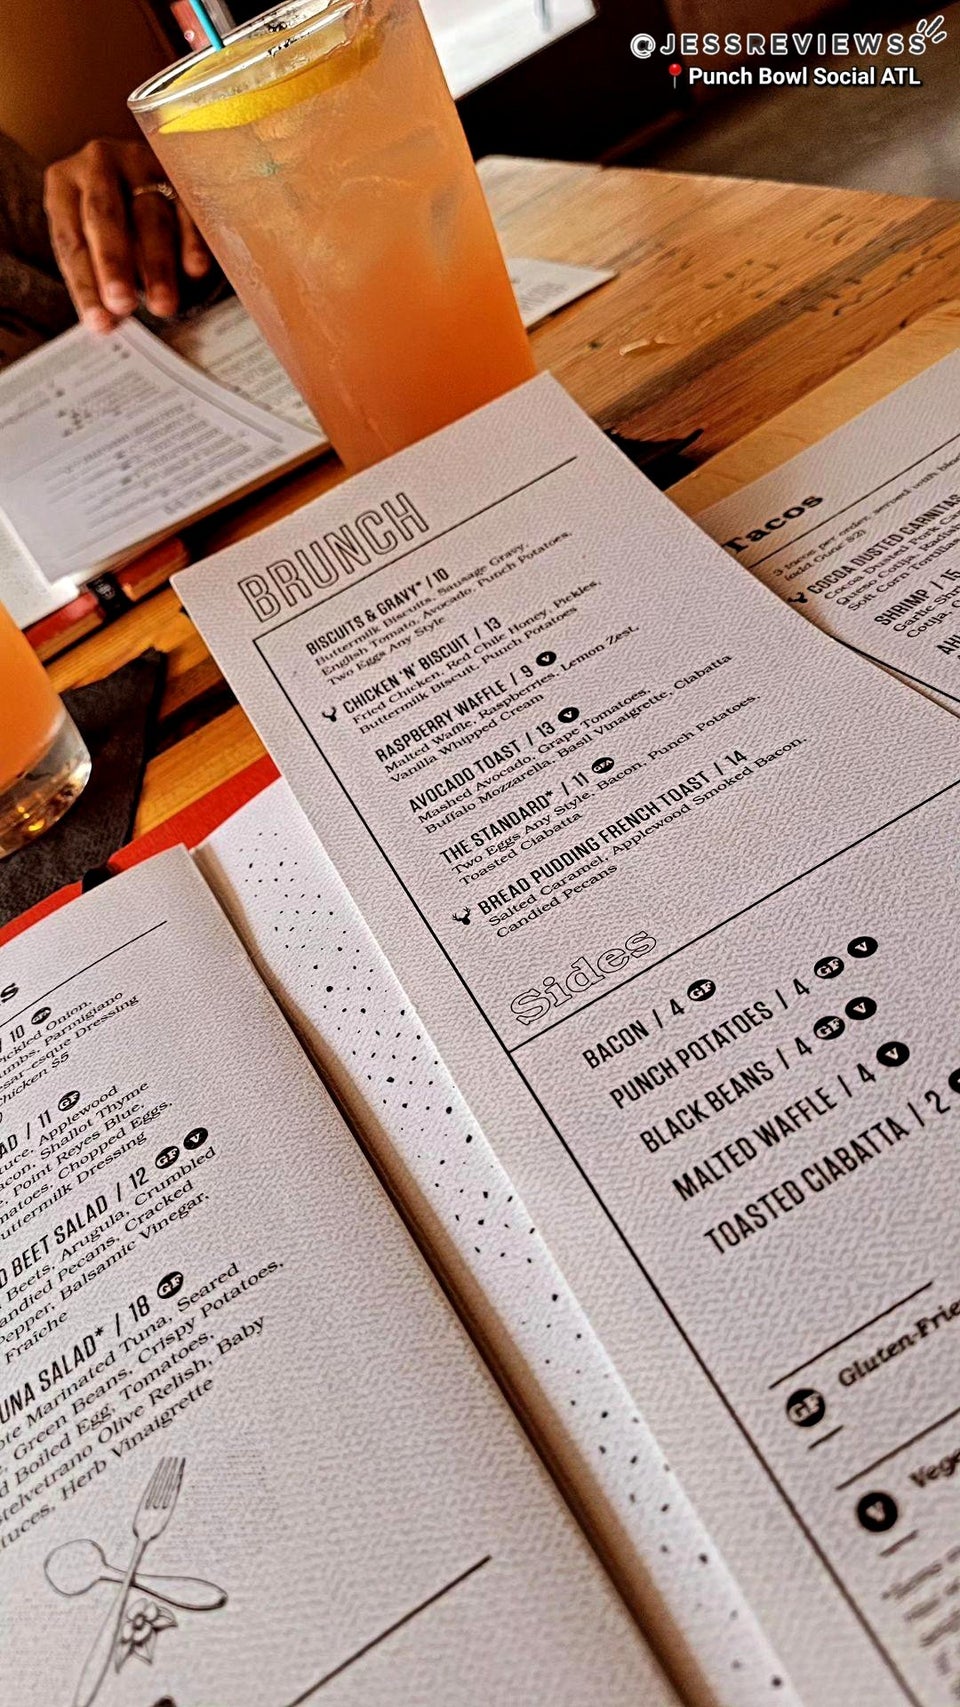 @JESSREVIEWSS
📍Punch Bowl Social ATL
BRUNCH
BISCUITS & GRAVY* / 10
Buttermilk Biscuits, Sausage Gravy,
English Tomato, Avocado, Punch Potatoes,
Two Eggs Any Style
CHICKEN 'N' BISCUIT / 13
Fried Chicken, Red Chile Honey, Pickles,
Buttermilk Biscuit, Punch Potatoes
RASPBERRY WAFFLE / 9 V
Malted Waffle, Raspberries, Lemon Zest,
Vanilla Whipped Cream
AVOCADO TOAST / 13 V
Mashed Avocado, Grape Tomatoes,
Buffalo Mozzarella, Basil Vinaigrette, Ciabatta
THE STANDARD* / 11 GFA
Two Eggs Any Style, Bacon, Punch Potatoes,
Toasted Ciabatta
BREAD PUDDING FRENCH TOAST / 14
Salted Caramel, Applewood Smoked Bacon,
Candied Pecans
Sides
BACON / 4 GF
PUNCH POTATOES / 4 GF V
BLACK BEANS / 4 GF V
MALTED WAFFLE / 4 V
TOASTED CIABATTA / 2
GF Gluten-Frie
V Vege
Tacos
3 tacos per order, served with
(add Ounc $2)
COCOA DUSTED CARNITAS
Cocoa Dusted Pork
Queso Cotija, Radish
Soft Corn Tortillas
SHRIMP / 15
Garlic Shr
Cotija, C
AH
s
/ 10
ickled Onion,
umbs, Parmigiano
esar-esque Dressing
Chicken $5
AD / 11 GF
tuce, Applewood
acon, Shallot Thyme
e, Point Reyes Blue,
matoes, Chopped Eggs,
uttermilk Dressing
D BEET SALAD / 12 GF V
Beets, Arugula, Crumbled
andied Pecans, Cracked
Pepper, Balsamic Vinegar,
Fraiche
UNA SALAD* / 18 GF
ote Marinated Tuna, Seared
, Green Beans, Crispy Potatoes,
d Boiled Egg, Tomatoes,
stelvetrano Olive Relish, Baby
tuces, Herb Vinaigrette